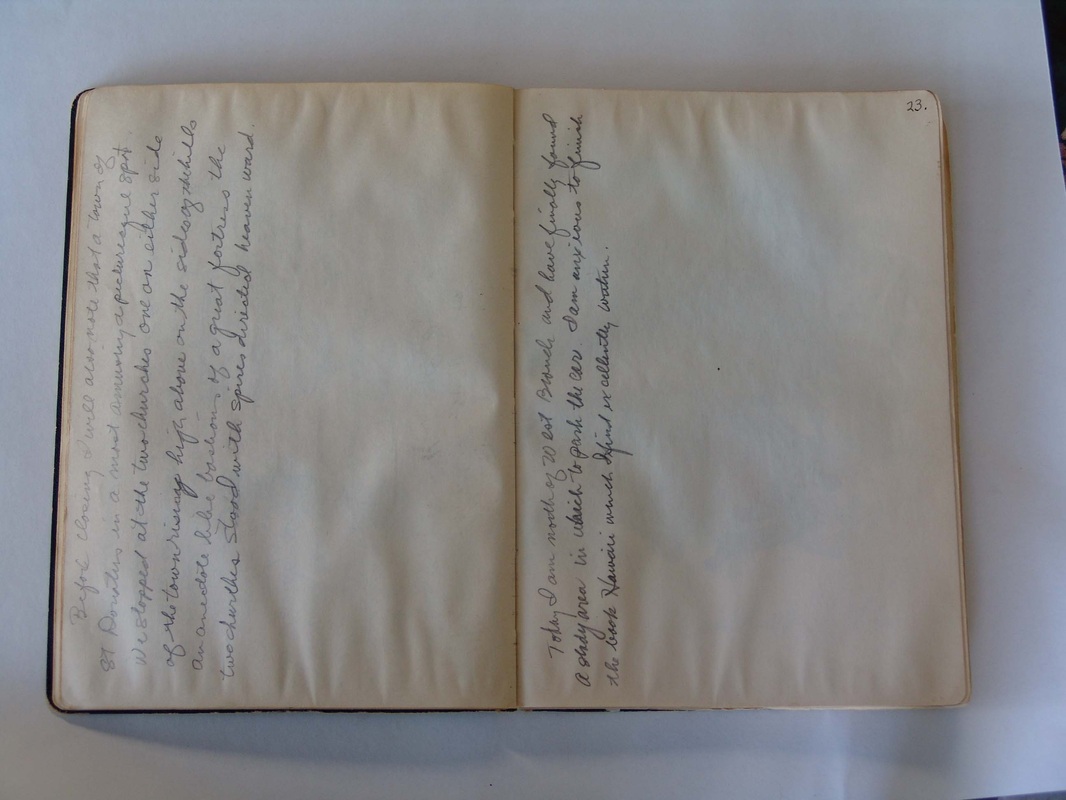 Before closing I will also note that a town of
St Donatus in a most amusing a picturesque spot.
We stopped at the two churches one on either side
of the town rising high above on the sides of the hills
an anecdote like bastions of a great fortress the
two churches stood with spires directed heaven ward.
23.
Today I am north of West Branch and have finally found
a shady area in which to park the car. I am anxious to finish
the book Hawaii which I find excellently written.